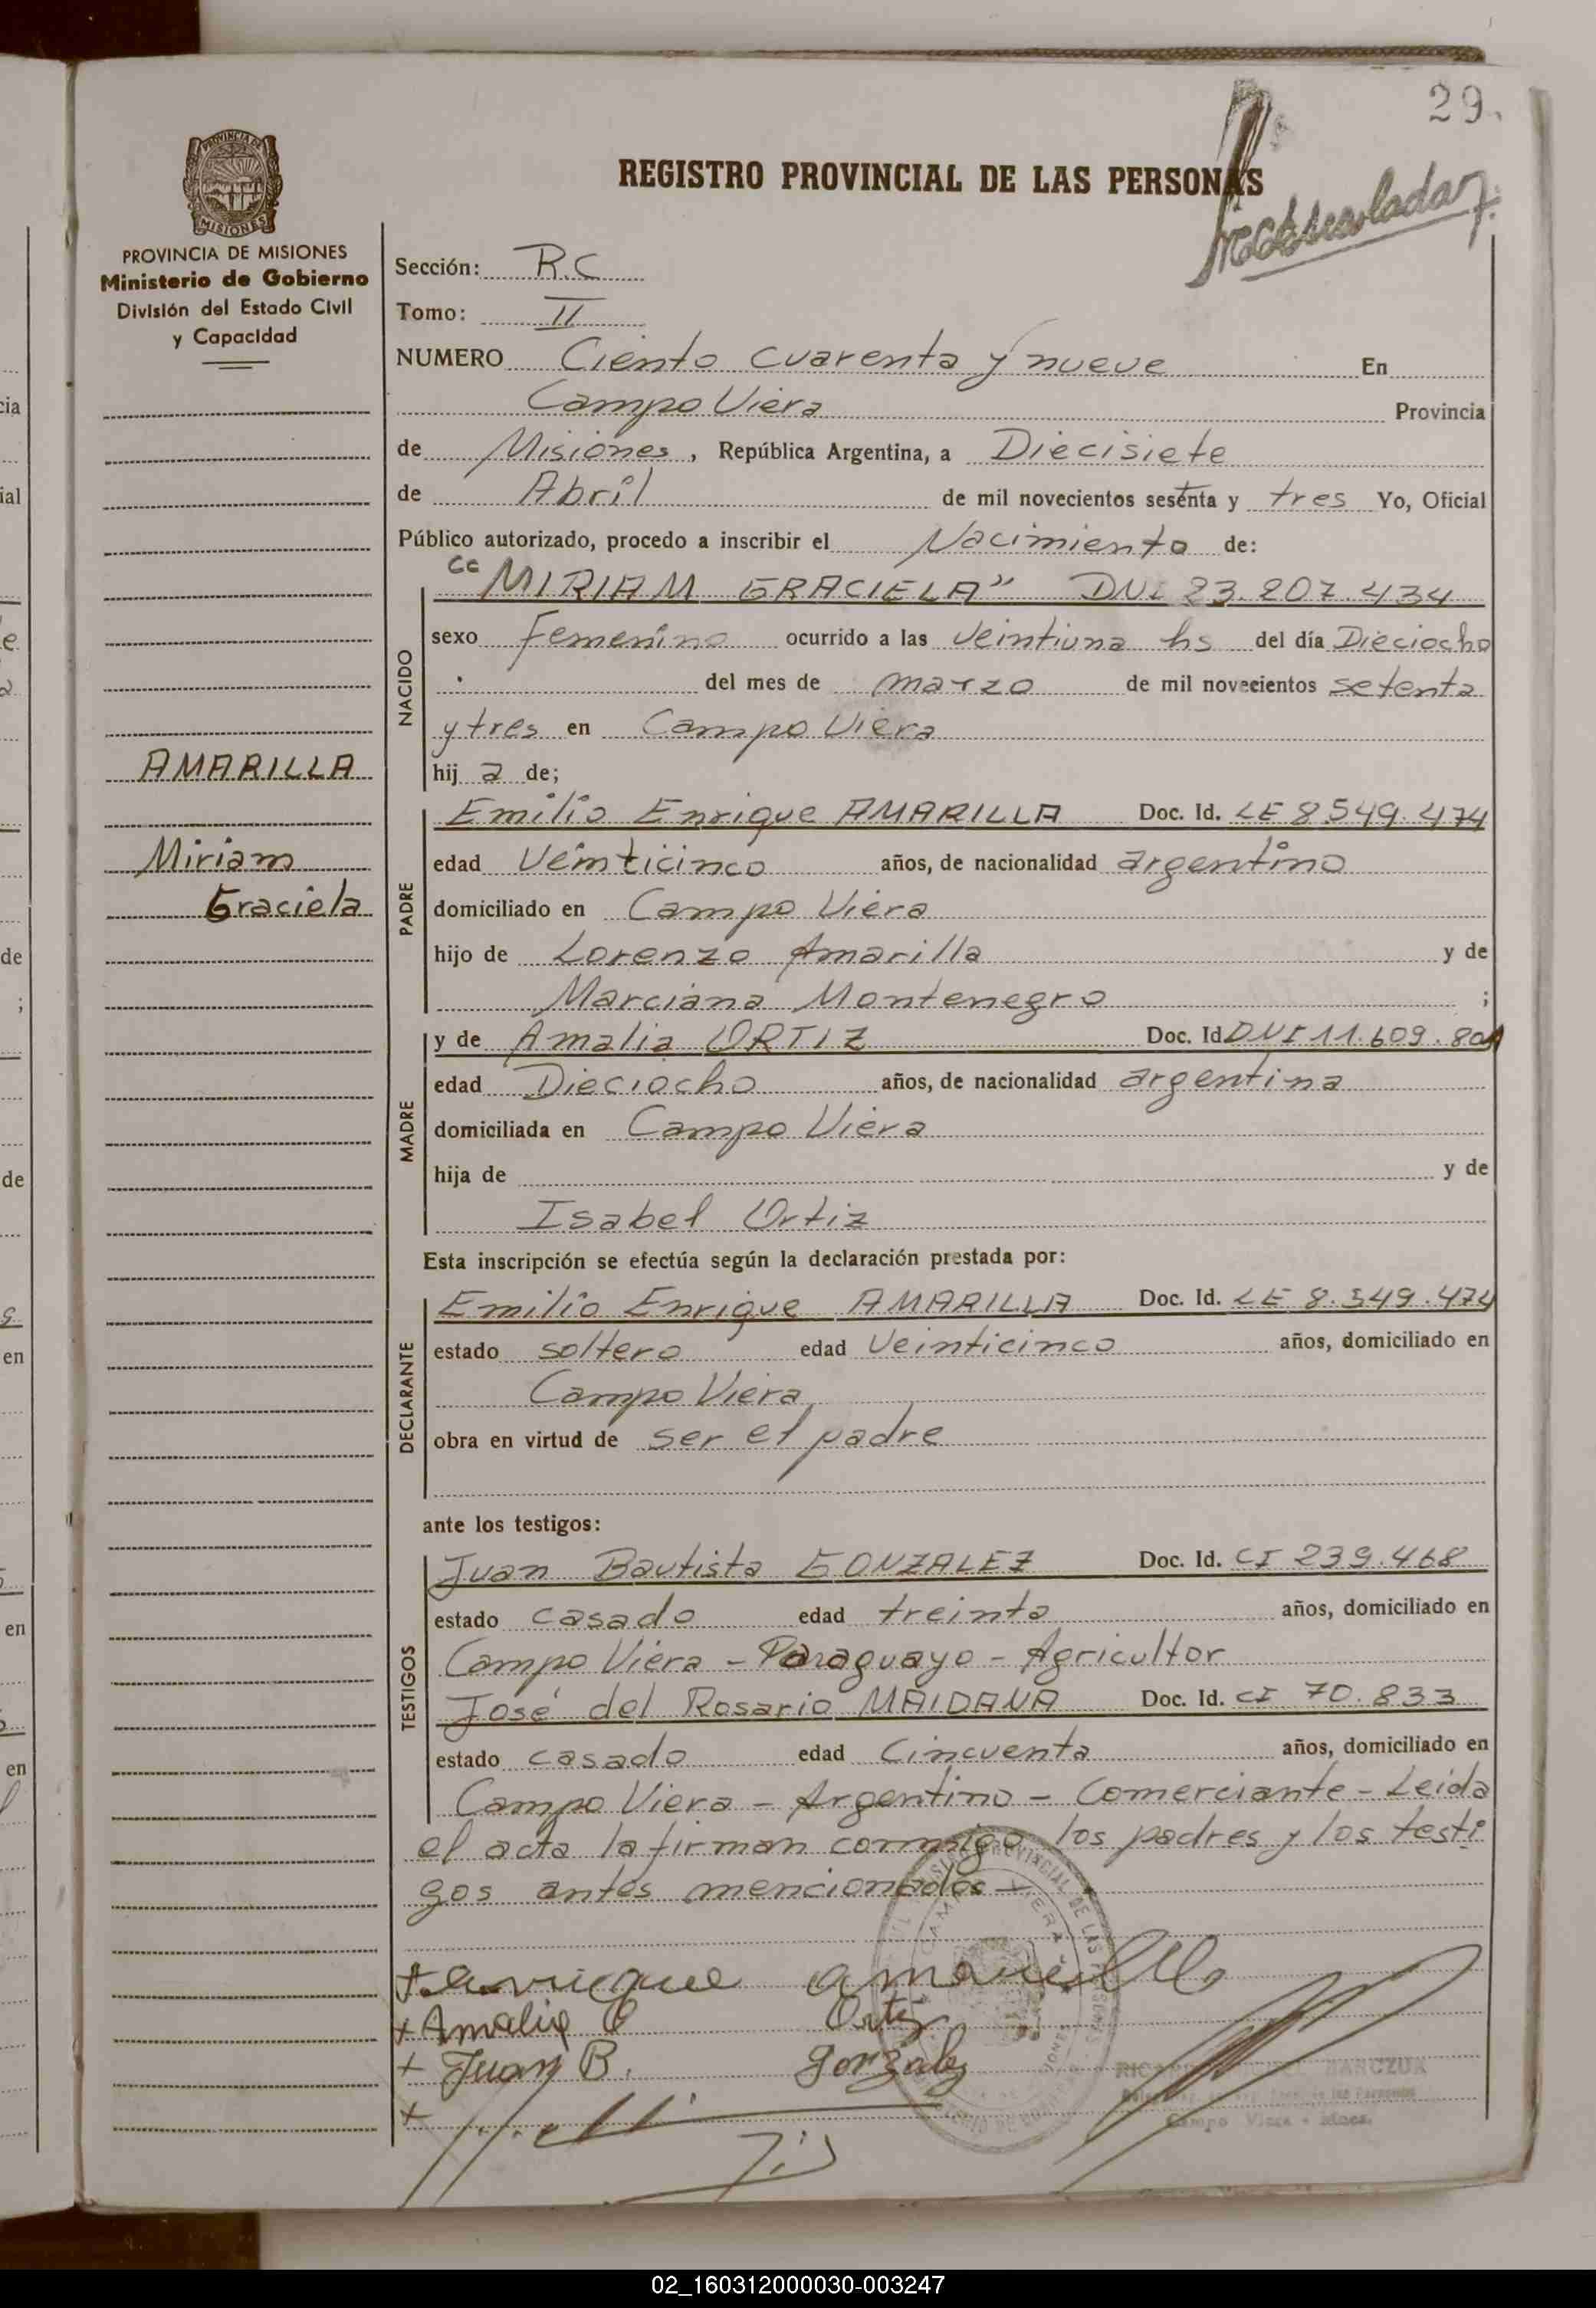 29.
REGISTRO PROVINCIAL DE LAS PERSONAS
PROVINCIA DE MISIONES
Ministerio de Gobierno
División del Estado Civil
y Capacidad
Sección: R.C
Tomo: II
NUMERO Ciento cuarenta y nueve En
Campo Viera Provincia
de Misiones, República Argentina, a Diecisiete
de Abril de mil novecientos sesenta y tres Yo, Oficial
Público autorizado, procedo a inscribir el Nacimiento de:
"MIRIAM GRACIELA" DNI 23.207.434
NACIDO
sexo Femenino ocurrido a las veintiuna hs del día Dieciocho
del mes de marzo de mil novecientos setenta
y tres en Campo Viera
hij a de;
AMARILLA
Miriam
Graciela
PADRE
Emilio Enrique AMARILLA Doc. Id. LE 8.549.474
edad Veinticinco años, de nacionalidad argentino
domiciliado en Campo Viera
hijo de Lorenzo Amarilla y de
Marciana Montenegro ;
MADRE
y de Amalia ORTIZ Doc. Id DNI 11.609.801
edad Dieciocho años, de nacionalidad argentina
domiciliada en Campo Viera
hija de y de
Isabel Ortiz
Esta inscripción se efectúa según la declaración prestada por:
DECLARANTE
Emilio Enrique AMARILLA Doc. Id. LE 8.549.474
estado soltero edad Veinticinco años, domiciliado en
Campo Viera
obra en virtud de ser el padre
ante los testigos:
TESTIGOS
Juan Bautista GONZALEZ Doc. Id. CI 239.468
estado casado edad treinta años, domiciliado en
Campo Viera - Paraguayo - Agricultor
José del Rosario MAIDANA Doc. Id. CI 70.833
estado casado edad Cincuenta años, domiciliado en
Campo Viera - Argentino - Comerciante - Leida
el acta la firman conmigo los padres y los testi
gos antes mencionados -
+ Enrique Amarilla
+ Amalia O Ortiz
+ Juan B. Gonzalez
+
Campo Viera
02_160312000030-003247